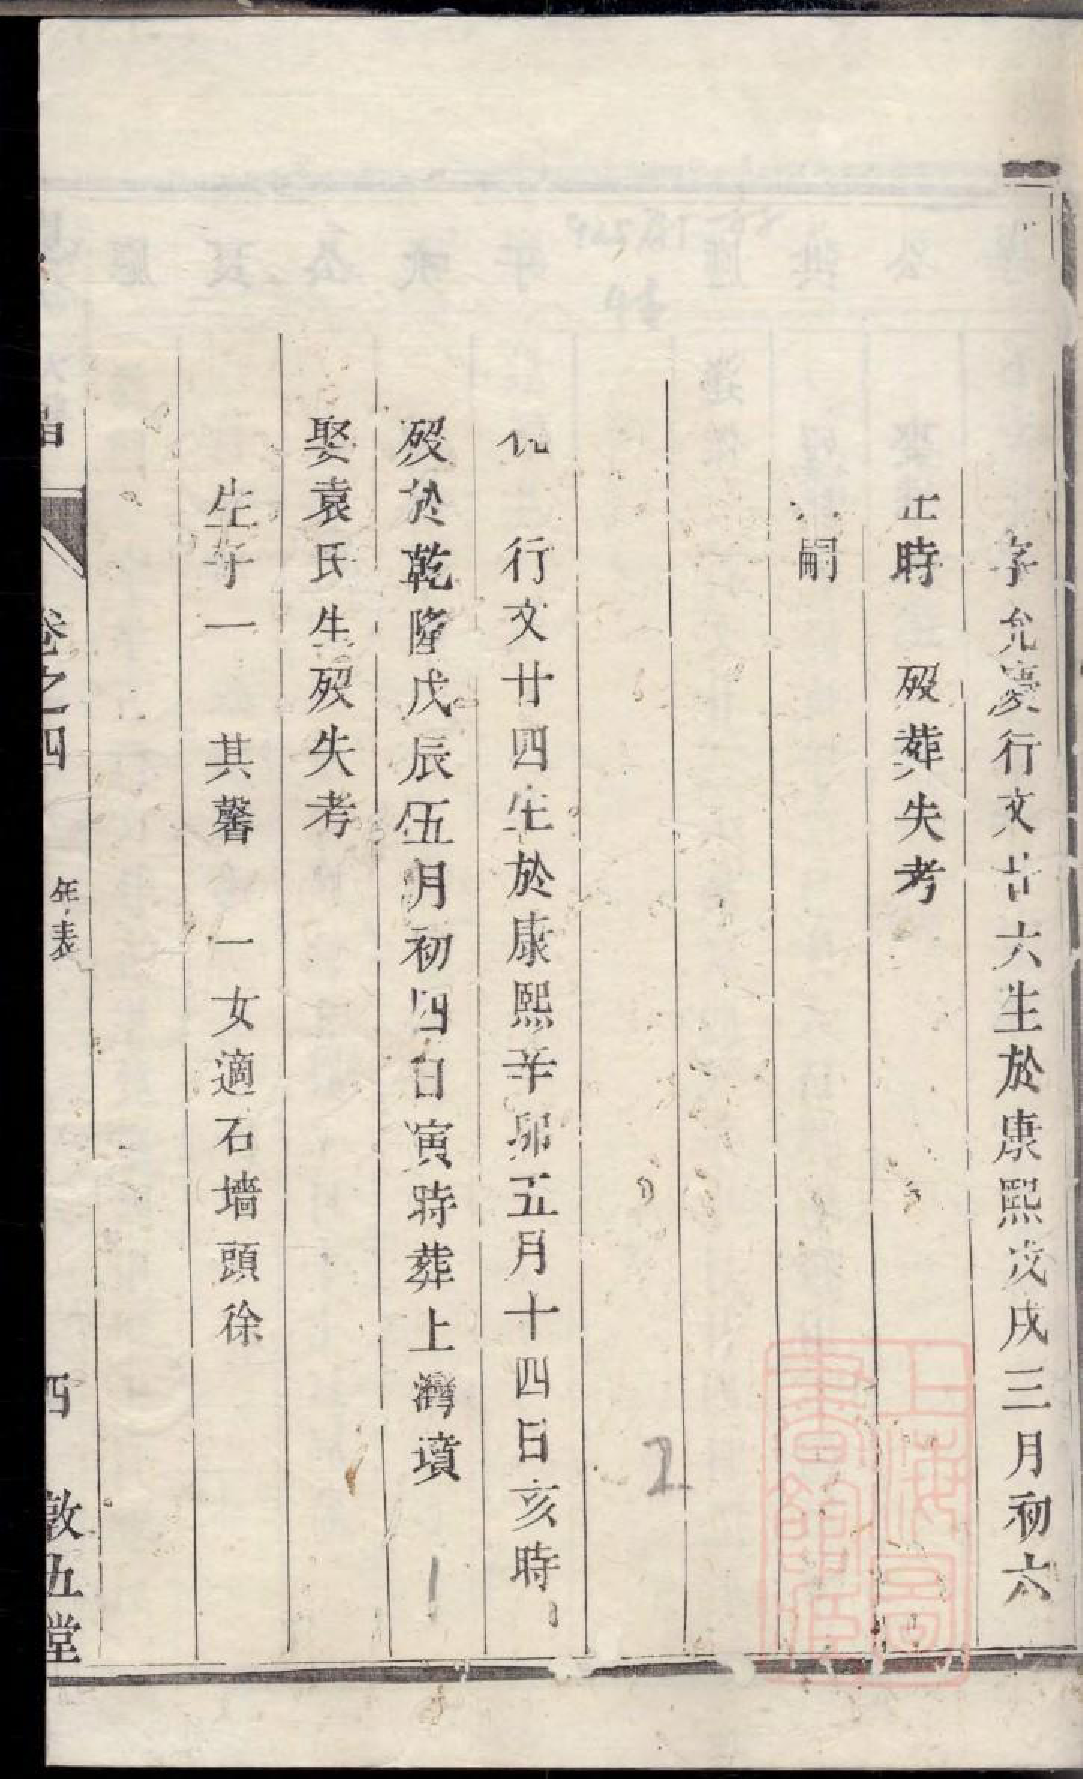 字允慶行文廿六生於康熙戊戌三月初六
時 歿葬失考
嗣
行文廿四生於康熙辛卯五月十四日亥時
歿於乾隆戊辰五月初四日寅時葬上灣墳
娶袁氏生歿失考
生子一 其馨 一女適石墻頭徐
卷之四 年表 敦五堂
上海圖書館藏
2
1